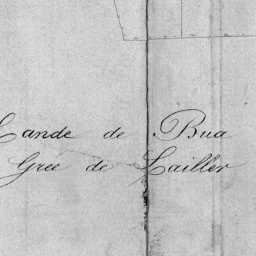 Lande de Bua
Gree de Lailler